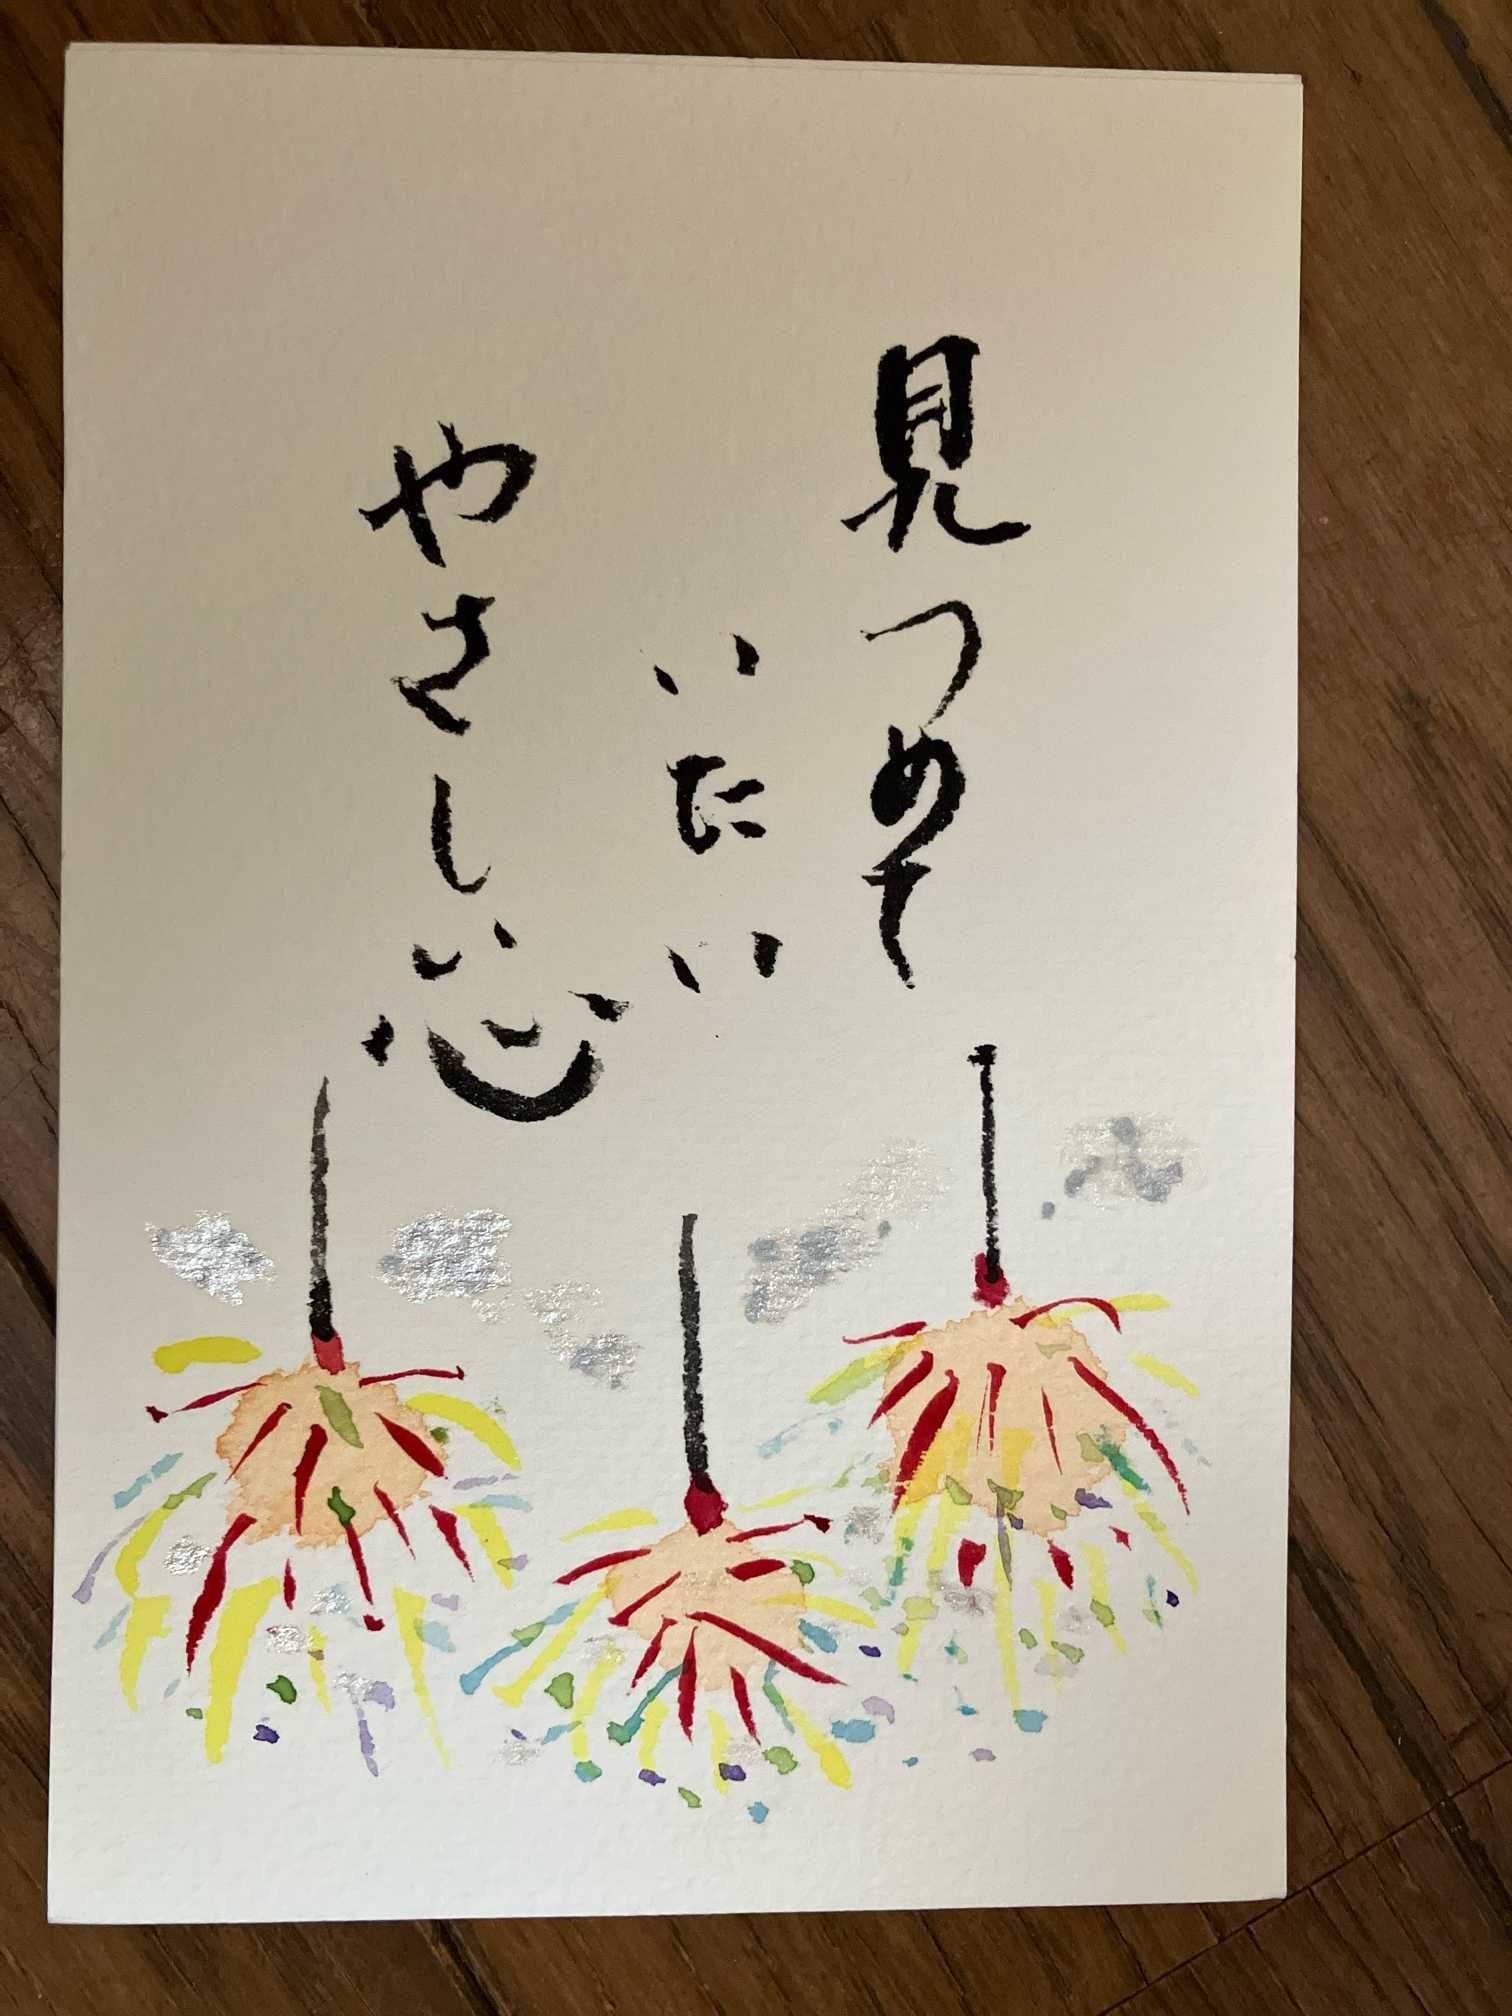 見つめて
いたい
やさしい心